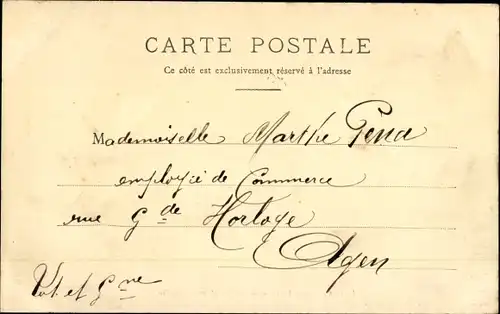 CARTE POSTALE
Ce côté est exclusivement réservé à l'adresse
Mademoiselle Marthe Pena
employée de Commerce
rue Gde Horloge
Agen
Lot et Gnne